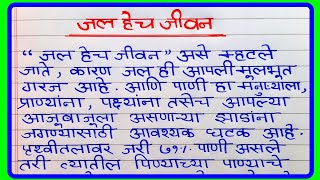 जल हेच जीवन
“ जल हेच जीवन ” असे म्हटले
जाते , कारण जल ही आपली मूलभूत
गरज आहे . आणि पाणी हा मनुष्याला,
प्राण्यांना , पक्ष्यांना तसेच आपल्या
आजूबाजूला असणाऱ्या झाडांना
जगण्यासाठी आवश्यक घटक आहे .
पृथ्वीतलावर जरी ७१% पाणी असले
तरी त्यातील पिण्याच्या पाण्याचे